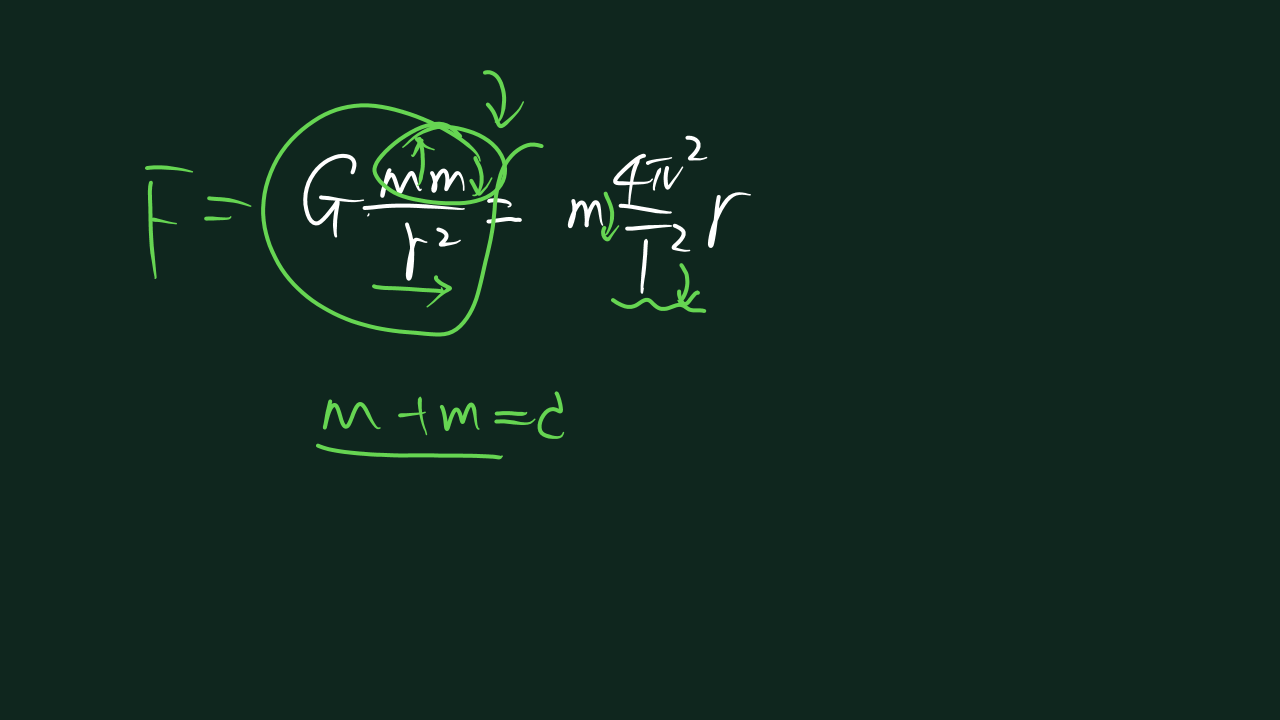 F = G \frac{mm}{r^2} = m \frac{4π^2}{T^2} r
m + m = c